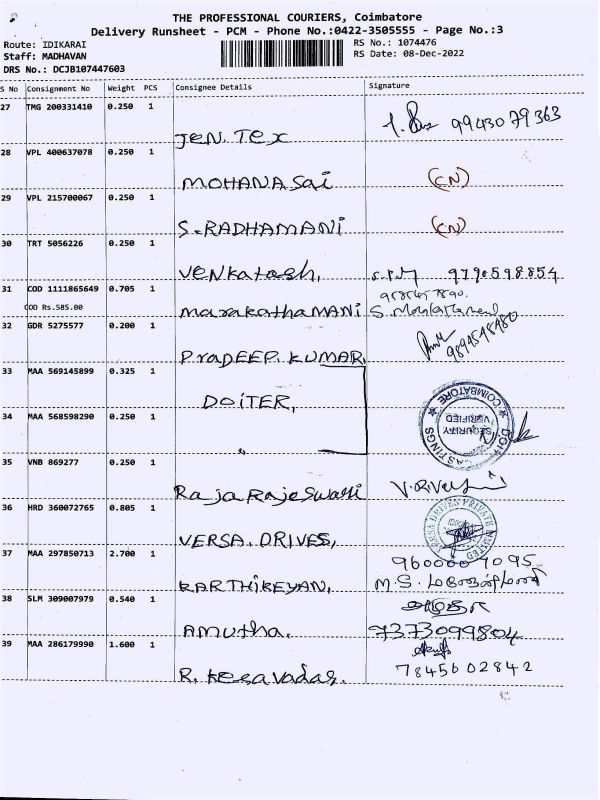 THE PROFESSIONAL COURIERS, Coimbatore
Delivery Runsheet - PCM - Phone No.:0422-3505555 - Page No.:3
Route: IDIKARAI
RS No.: 1074476
Staff: MADHAVAN
RS Date: 08-Dec-2022
DRS No.: DCJB107447603
S No Consignment No Weight PCS Consignee Details Signature
27 TMG 200331410 0.250 1
Jen. Tex 9943079363
28 VPL 400637078 0.250 1
MOHANA Sai (CN)
29 VPL 215700067 0.250 1
S. RADHAMANI (CN)
30 TRT 5056226 0.250 1
Venkatash, 9790598854
31 COD 1111865649 0.705 1
COD Rs.585.00
marakathaMANI
32 GDR 5275577 0.200 1
PradEEP. KUMAR.
33 MAA 569145899 0.325 1
DOiTER,
34 MAA 568598290 0.250 1
"
COIMBATORE
SECURITY
VERIFIED
35 VNB 869277 0.250 1
Raja Rajeswari
36 HRD 360072765 0.805 1
VERSA. DRIVES,
VERSA DRIVES PRIVATE LIMITED
37 MAA 297850713 2.700 1
KARTHIKEYAN,
38 SLM 309007979 0.540 1
Amutha. 7373099804
39 MAA 286179990 1.600 1
R. Kesavadas. 7845602842